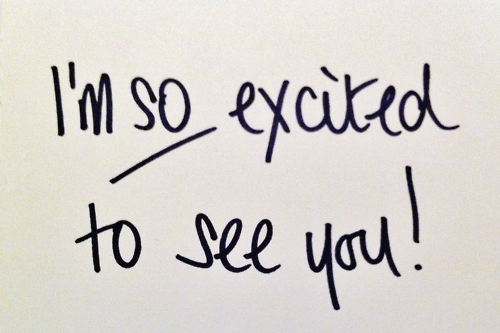 I'm so excited
to see you!